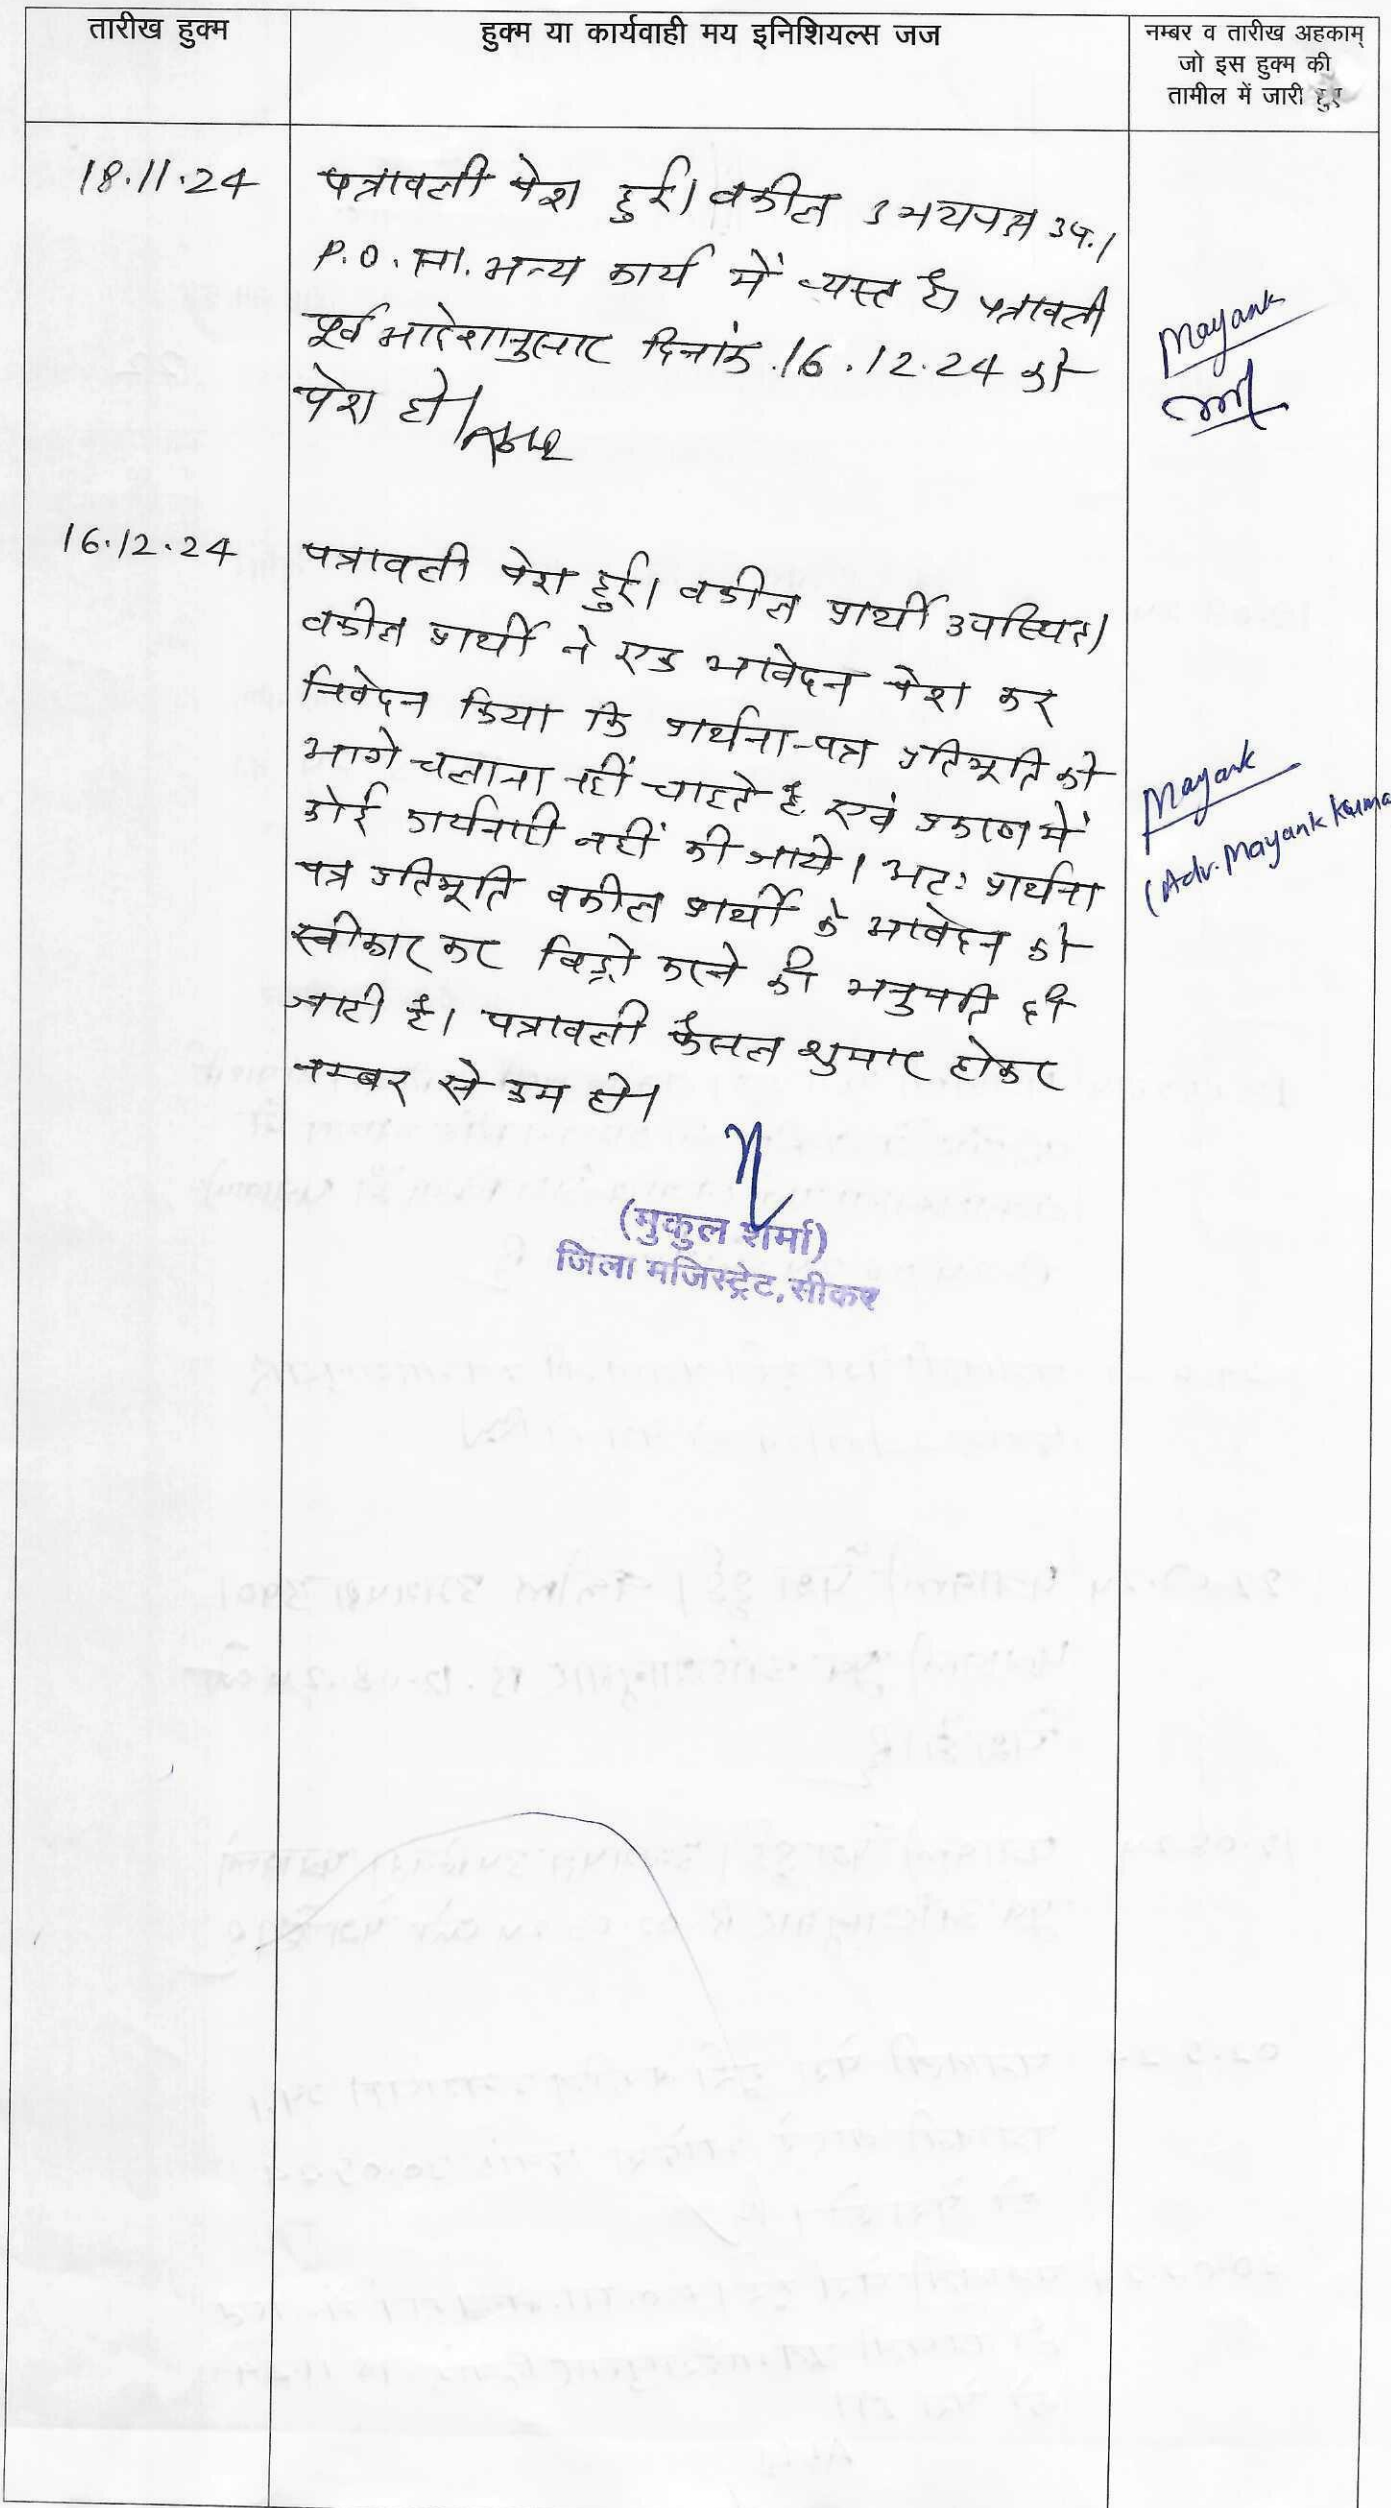 तारीख हुक्म
हुक्म या कार्यवाही मय इनिशियल्स जज
नम्बर व तारीख अहकाम्
जो इस हुक्म की
तामील में जारी हुए
18.11.24
पत्रावली पेश हुई। वकील उभयपक्ष उप.।
P.O. सा. अन्य कार्य में व्यस्त है। पत्रावली
पूर्व आदेशानुसार दिनांक 16.12.24 को
पेश हो।
Mayank
16.12.24
पत्रावली पेश हुई। वकील प्रार्थी उपस्थित।
वकील प्रार्थी ने एक आवेदन पेश कर
निवेदन किया कि प्रार्थना-पत्र प्रतिभूति को
आगे चलाना नहीं चाहते है एवं प्रकरण में
कोई कार्यवाही नहीं की जाये। अतः प्रार्थना
पत्र प्रतिभूति वकील प्रार्थी के आवेदन को
स्वीकार कर विड्रो करने की अनुमति दी
जाती है। पत्रावली फैसल शुमार होकर
नम्बर से कम हो।
Mayank
(Adv. Mayank Kuma
(मुकुल शर्मा)
जिला मजिस्ट्रेट, सीकर